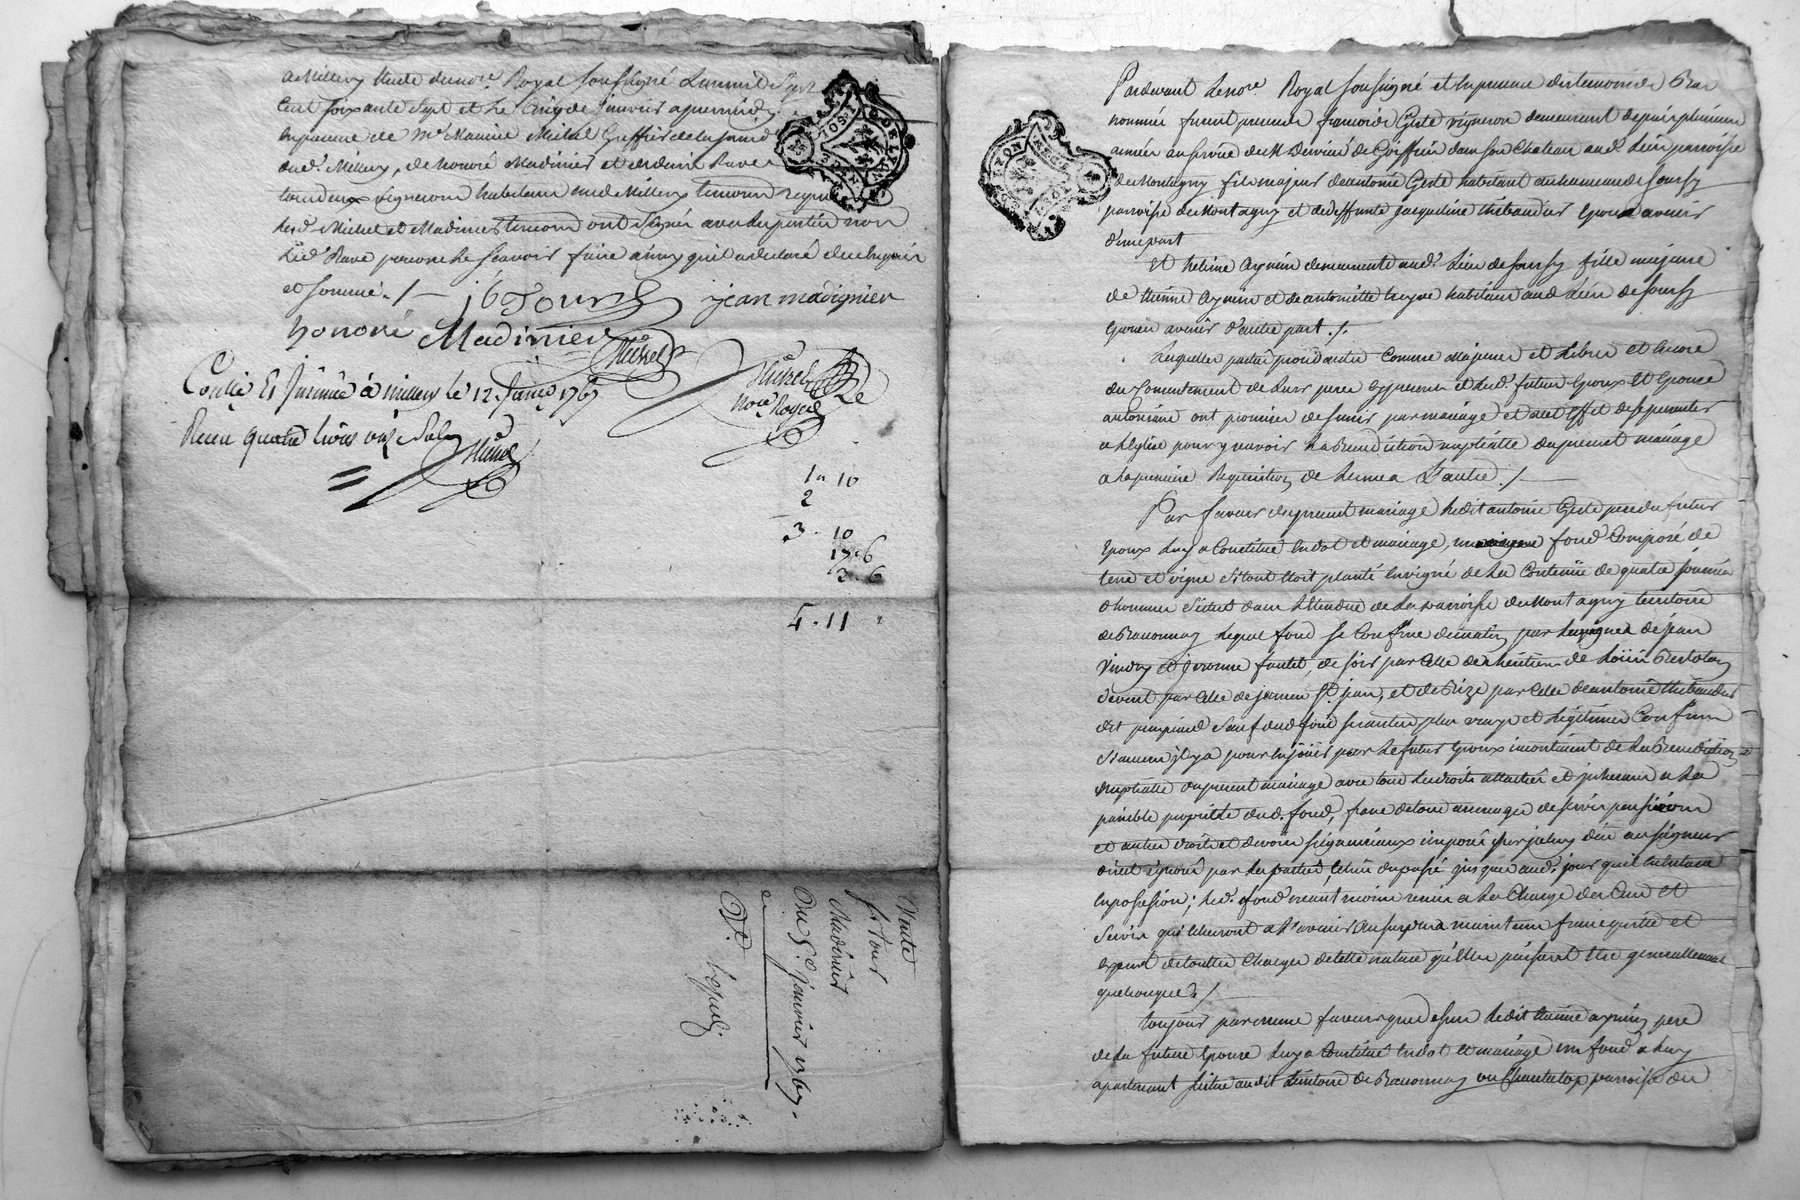 a Millery Etude du no.re Royal soussigné L'an mil sept
cent soixante sept et le cinq de janvier apres midy
en presence de M.e Maurice Michel Greffier de la
dud. Millery, de honoré Madinier et
tous deux vignerons habitans aud. Millery temoins requis
les d. Michel et Madinier temoins ont signé avec les parties non
led. Rave pour ne le scavoir faire ainsy qu'il a declaré de ce enquis
et sommé ./.
jean madignier
honoré Madinier
Michel
Michel
No.re Royal
Conllé Et Insinué à millery le 12. Janvier 1767
Receu quatre livres onze sols
Michel
1 " 10
2
3 . 10
17 . 6
3 . 6
4 . 11
Vente
p.r tour
Madinier
Du 5.e janvier 1767.
Exp.
LYON
Pardevant Le no.re Royal soussigné et En presence des temoins Bas
nommés furent presens francois Geste vigneron demeurant depuis plusieurs
années au service de M Dervieu de Goiffieu dans son Chateau aud. Lieu parroisse
de Montagny fils majeur de antoine Geste habitant au hameau de Sourzy
parroisse de Montagny et de deffunte jacqueline thibaudier Epoux avenir
d'une part
Et helene aymin demeurante aud. Lieu de Sourzy fille majeure
de Etienne aymin et de antoinette habitans aud. Lieu de Sourzy
Epouse avenir d'autre part ./.
Lesquelles parties procedantes comme majeures et Libres et Encore
du Consentement de Leurs peres cy presens et led. futurs Epoux Et Epouse
autorisés ont promis de s'unir par mariage et a cet Effet de se presenter
a L'Eglise pour y recevoir La Benediction nuptialle du present mariage
a la premiere Requisition de L'un a L'autre ./.
Par faveur du present mariage ledit antoine Geste pere du futur
Epoux Luy a Constitué En dot et mariage, un fond Composé de
terre et vigne Si tout n'est planté En vigne de La Contenue de quatre journées
d'hommes Scitué dans L'Etendue de La parroisse de Montagny territoire
de Bravonnay Lequel fond se Confine de matin par Les vignes de jean
Vindry et jeromme fontet, de soir par Celle des heritiers de Loüis Bertolon
de vent par Celle de jamen St. jean, et de Bize par Celle de antoine thibaudier
dit Sauf dud. fond ses autres plus vrays et Legitimes Confins
S'aucuns il y a pour En joüir par Le futur Epoux incontinent de La Benediction
nuptialle du present mariage avec tous Les droits attachés et jnherans a La
paisible proprieté dud. fond, franc de tous arrerages de servis pensions
et autres droits et devoirs seigneuriaux imposés sur jceluy dûs au seigneur
direct ignoré par Les parties, Et ce du passé jusques aud. jour qu'il Entrera
En possession; Led. fond neantmoins remis a La Charge des Cens et
Servis qu'il Echeront a L'avenir Au surplus maintenu franc quitte et
Exempt de touttes Charges de cette nature qu'Elles puissent Etre generallement
quelconques ./.
toujours par meme faveur que dessus Ledit Etienne aymin pere
de La future Epouse Luy a Constitué En dot et mariage un fond a Luy
apartenant Scitué audit territoire de Bravonnay ou Chantelop parroisse de